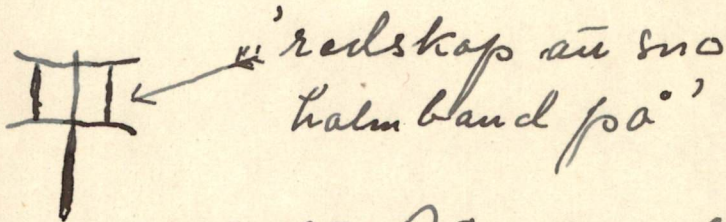 'redskap att sno
halmband på'